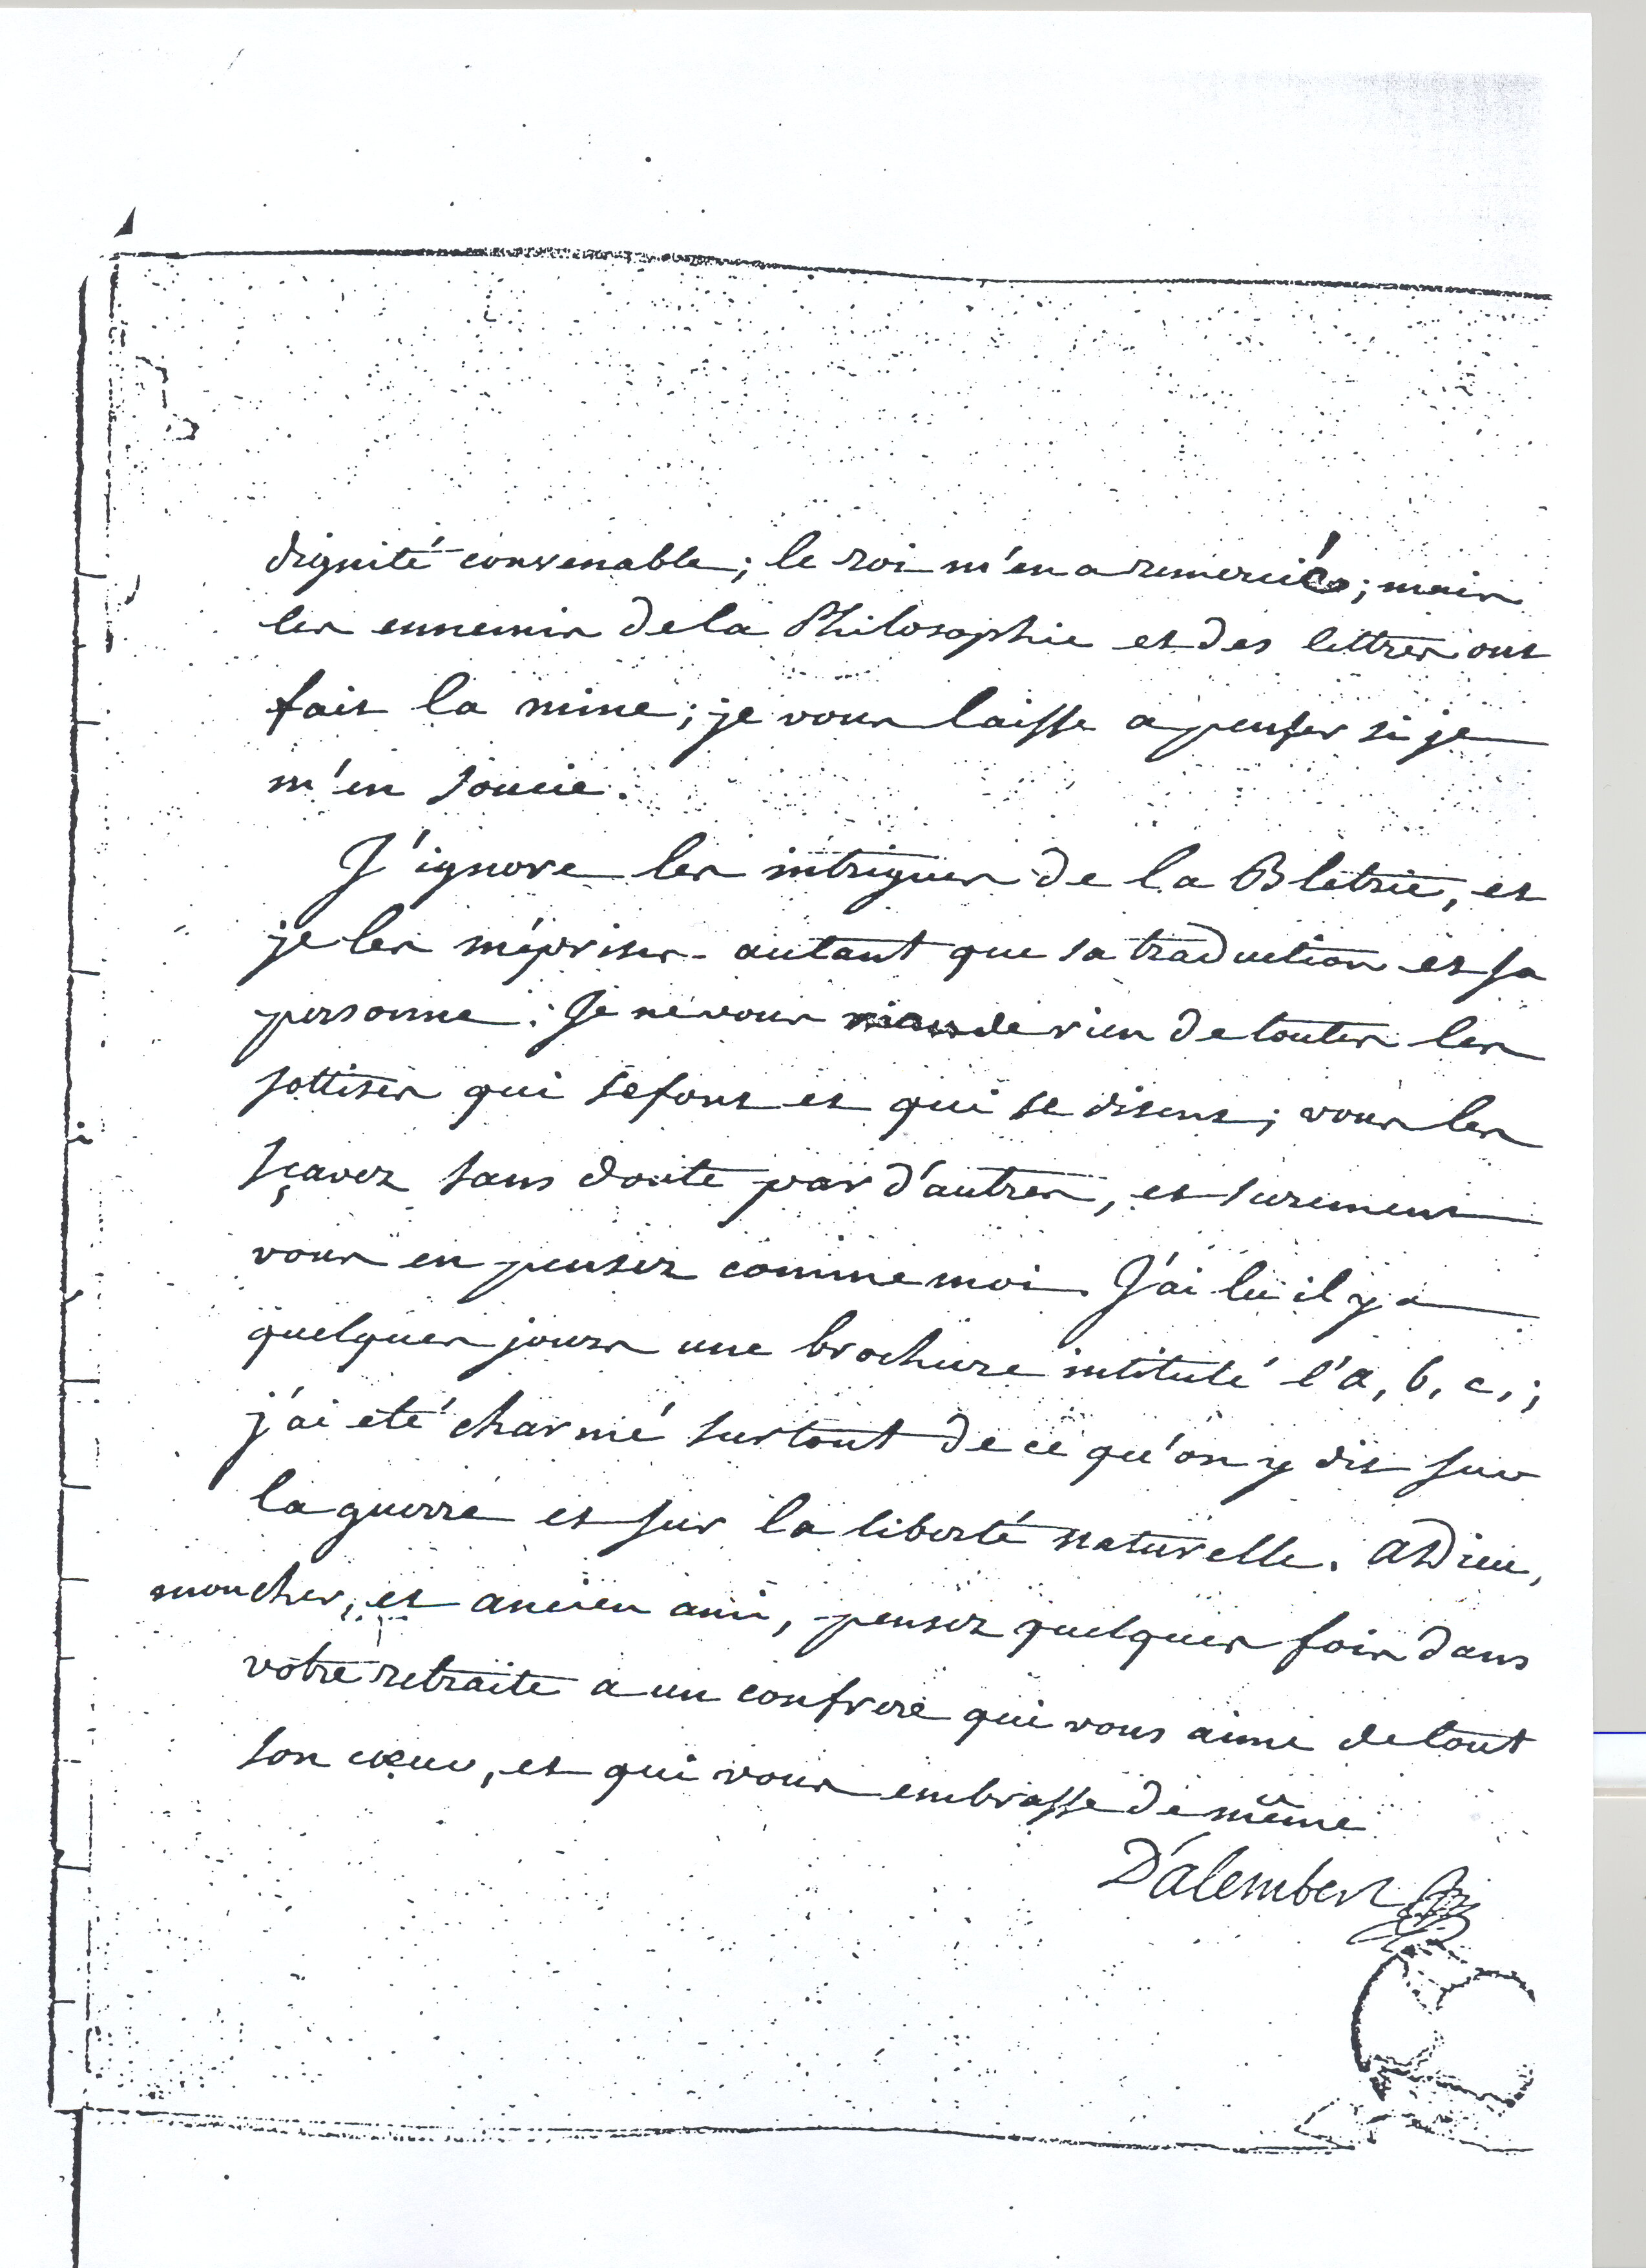 dignité convenable; le roi m'en a remercié; mais
les ennemis de la Philosophie et des lettres ont
fait la mine; je vous laisse a penser si je
m'en soucie.
J'ignore les intrigues de la Bletrie, et
je les méprise autant que sa traduction et sa
personne. Je ne vous mande rien de toutes les
sottises qui se font et qui se disent; vous les
sçavez sans doute par d'autres, et surement
vous en pensez comme moi. J'ai lu il y a
quelques jours une brochure intitulé l'a, b, c,;
j'ai eté charmé surtout de ce qu'on y dit sur
la guerre et sur la liberté naturelle. adieu,
mon cher, et ancien ami, pensez quelques fois dans
votre retraite a un confrere qui vous aime de tout
son cœur, et qui vous embrasse de même
D'alembert